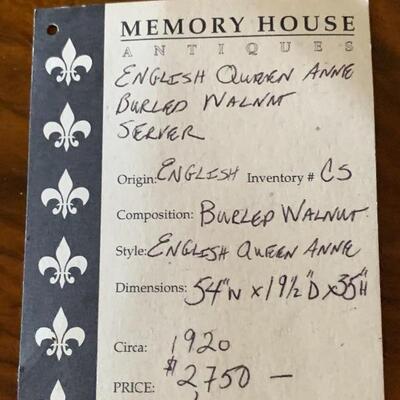 MEMORY HOUSE
ANTIQUES
ENGLISH QUEEN ANNE
BURLED WALNUT
SERVER
Origin: ENGLISH Inventory # CS
Composition: BURLED WALNUT
Style: ENGLISH QUEEN ANNE
Dimensions: 54"W x 19½"D x 35"H
Circa: 1920
PRICE: $2,750 —